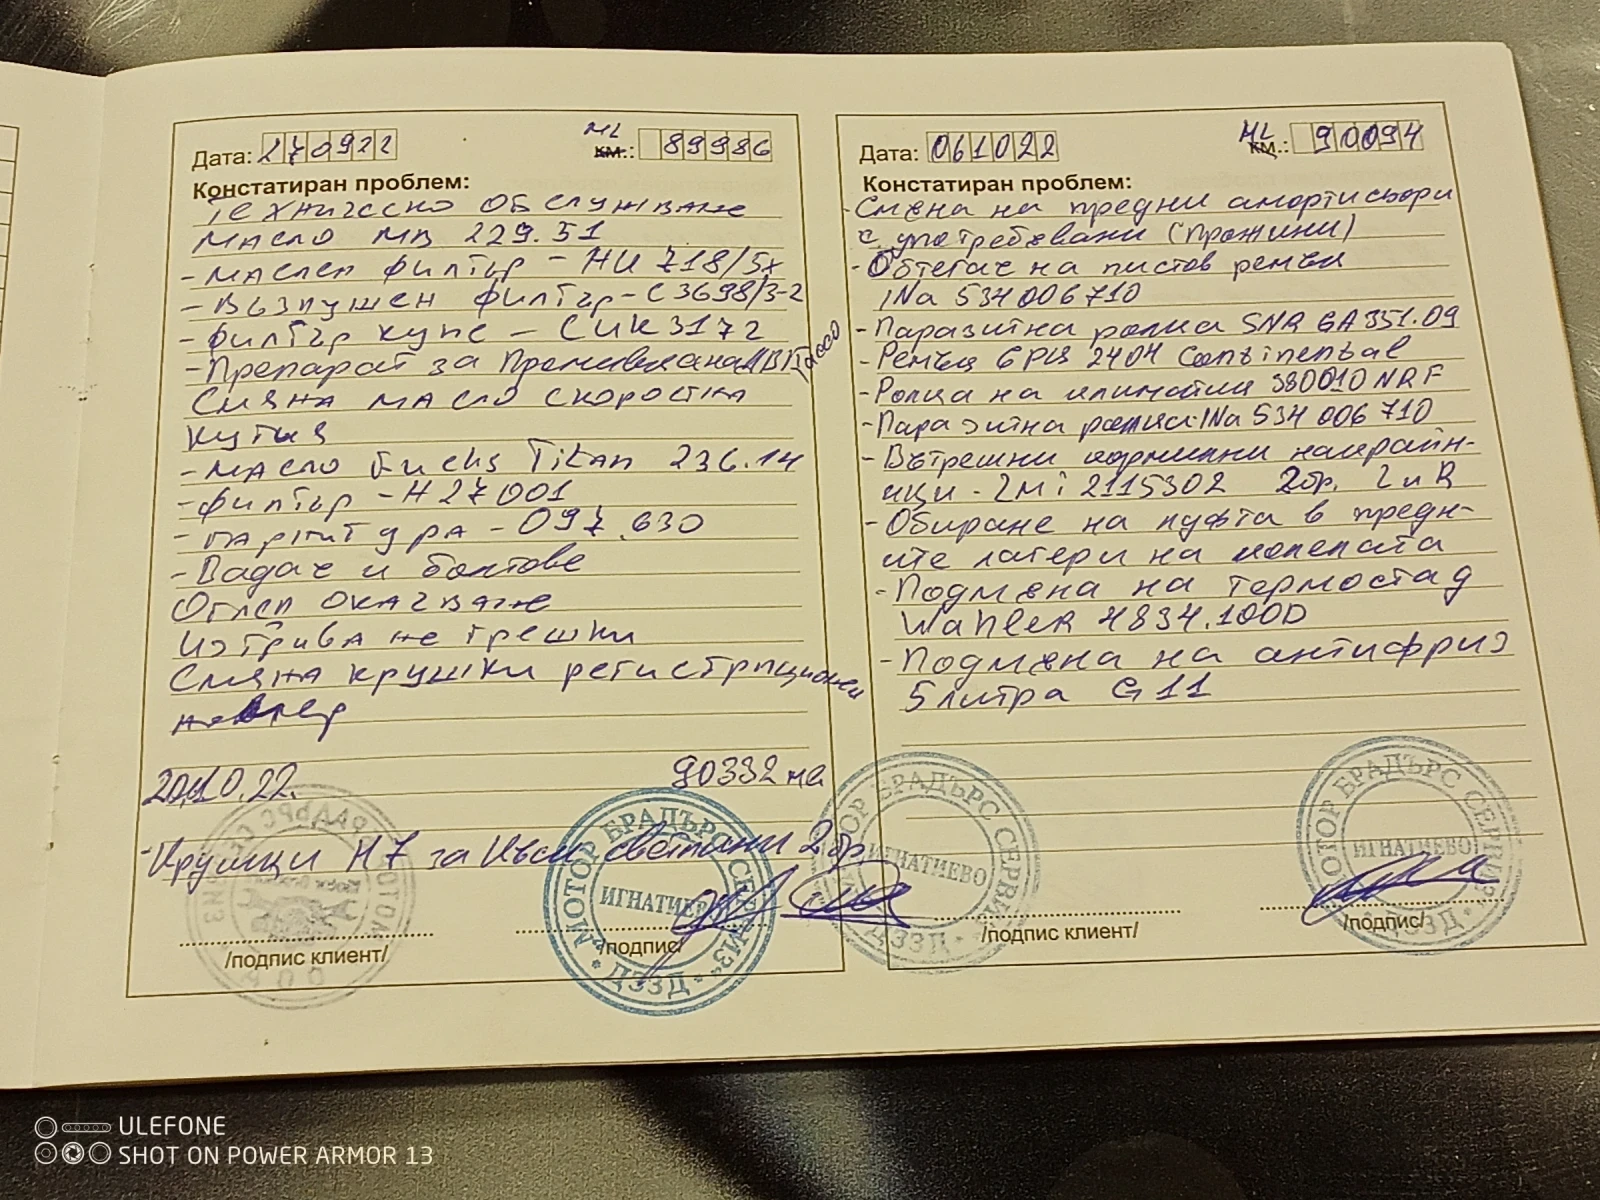 Дата: 270922
ML
км.: 89986
Констатиран проблем:
Техническо обслужване
Масло МВ 229.51
- Маслен филтър - HU 718/5x
- Въздушен филтър - C3698/3-2
- Филтър купе - CUK 3172
- Препарат за Промиване на
Смяна масло скоростна
кутия
- Масло Fuchs Titan 236.14
- Филтър - H27001
- гарнитура - 097.630
- Вадач и болтове
Оглед окачване
Изтриване грешки
Смяна крушки регистрационен
номер
20.10.22. 90332
- Крушки H7 за Къси светлини 2бр
/подпис клиент/
/подпис/
МОТОР БРАДЪРС СЕРВИЗ
ИГНАТИЕВО
ДЗЗД
Дата: 061022
ML
км.: 90094
Констатиран проблем:
- Смяна на предни амортисьори
с употребявани (Пружини)
- Обтегач на пистов ремък
INa 534006710
- Паразитна ролка SNR GA351.09
- Ремък 6PK 2404 Continental
- Ролка на климатик 380010 NRF
- Паразитна ролка INa 534 006 710
- Вътрешни кормилни накрайн-
ици - 2115302 2бр. L и R
- Обиране на луфта в предн-
ите лагери на колелата
- Подмяна на термостад
WahleR 4834.100D
- Подмяна на антифриз
5 литра G11
/подпис клиент/
/подпис/
МОТОР БРАДЪРС СЕРВИЗ
ИГНАТИЕВО
ДЗЗД
ULEFONE
SHOT ON POWER ARMOR 13